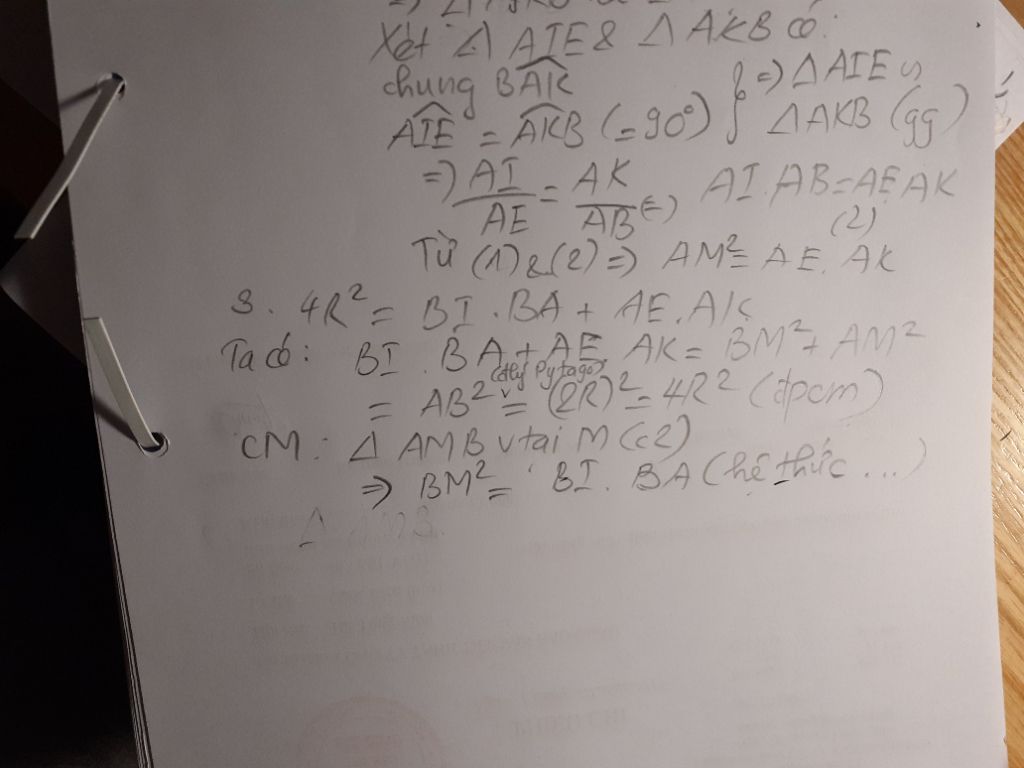 Xét Δ AIE & Δ AKB có:
chung BAK^ } => Δ AIE ∽
AIE^ = AKB^ (= 90°) } Δ AKB (gg)
=> AI/AE = AK/AB <=> AI.AB = AE.AK
(2)
Từ (1)&(2) => AM² = AE. AK
3. 4R² = BI.BA + AE.AK
Ta có: BI . BA + AE. AK = BM² + AM²
(đly Pytago)
= AB² = (2R)² = 4R² (đpcm)
CM: Δ AMB v tại M (c2)
=> BM² = BI. BA (hệ thức ...)